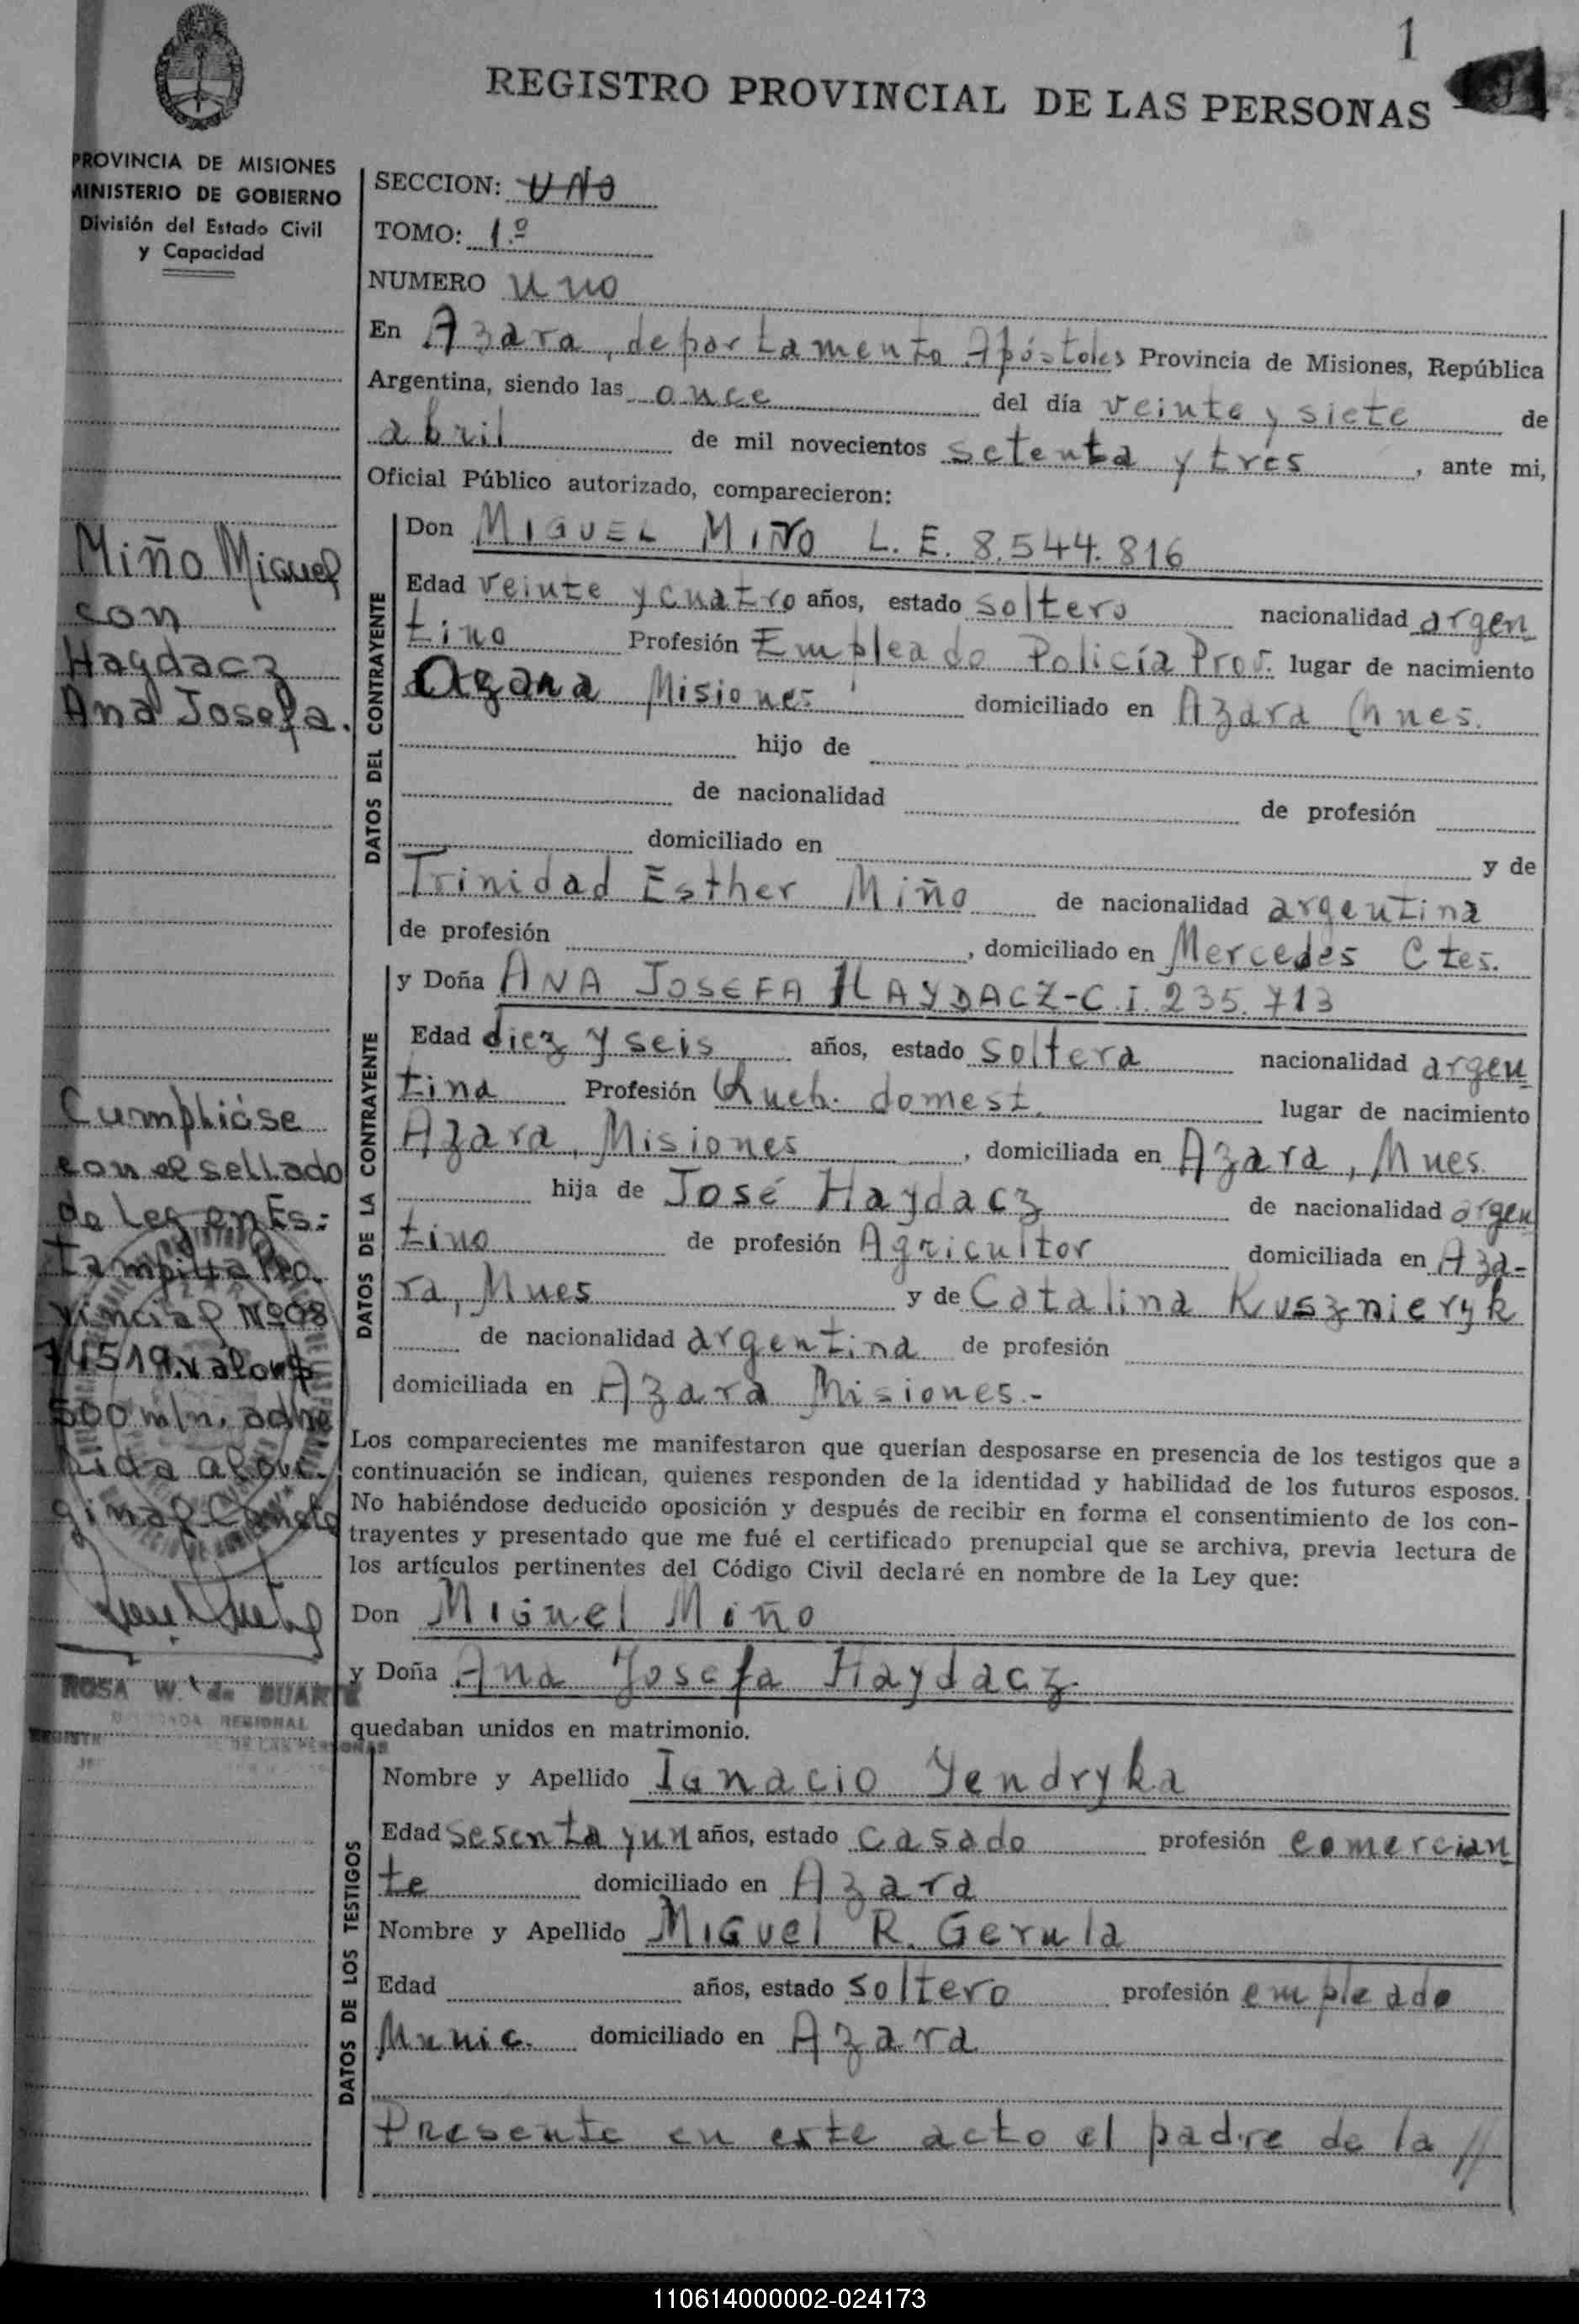 1
REGISTRO PROVINCIAL DE LAS PERSONAS
PROVINCIA DE MISIONES
MINISTERIO DE GOBIERNO
División del Estado Civil
y Capacidad
SECCION: UNO
TOMO: 1.º
NUMERO uno
En Azara, departamento Apóstoles Provincia de Misiones, República
Argentina, siendo las once del día veinte y siete de
abril de mil novecientos setenta y tres, ante mi,
Oficial Público autorizado, comparecieron:
Miño Miguel
con
Haydacz
Ana Josefa.
DATOS DEL CONTRAYENTE
Don MIGUEL MIÑO L. E. 8.544.816
Edad veinte y cuatro años, estado soltero nacionalidad argen
tino Profesión Empleado Policía Prov. lugar de nacimiento
Azara Misiones domiciliado en Azara Mnes.
hijo de
de nacionalidad de profesión
domiciliado en y de
Trinidad Esther Miño de nacionalidad argentina
de profesión , domiciliado en Mercedes Ctes.
DATOS DE LA CONTRAYENTE
y Doña ANA JOSEFA HAYDACZ-C.I. 235.713
Edad diez y seis años, estado soltera nacionalidad argen
tina Profesión Queh. domest. lugar de nacimiento
Azara, Misiones, domiciliada en Azara, Mnes.
hija de José Haydacz de nacionalidad argen
tino de profesión Agricultor domiciliada en Aza-
ra, Mnes y de Catalina Kusznieryk
de nacionalidad argentina de profesión
domiciliada en Azara Misiones.-
Cumplióse
con el sellado
de Ley en Es=
tampilla Pro
vincial Nº 03
74519.valor $
500 m/n. adhe
rida al ori-
ginal Conste
ROSA W. de DUARTE
REGIONAL
DE LAS PERSONAS
Los comparecientes me manifestaron que querían desposarse en presencia de los testigos que a
continuación se indican, quienes responden de la identidad y habilidad de los futuros esposos.
No habiéndose deducido oposición y después de recibir en forma el consentimiento de los con-
trayentes y presentado que me fué el certificado prenupcial que se archiva, previa lectura de
los artículos pertinentes del Código Civil declaré en nombre de la Ley que:
Don Miguel Miño
y Doña Ana Josefa Haydacz
quedaban unidos en matrimonio.
DATOS DE LOS TESTIGOS
Nombre y Apellido Ignacio Yendryka
Edad sesenta y un años, estado casado profesión comercian
te domiciliado en Azara
Nombre y Apellido Miguel R. Gerula
Edad años, estado soltero profesión empleado
Munic. domiciliado en Azara
Presente en este acto el padre de la //
110614000002-024173